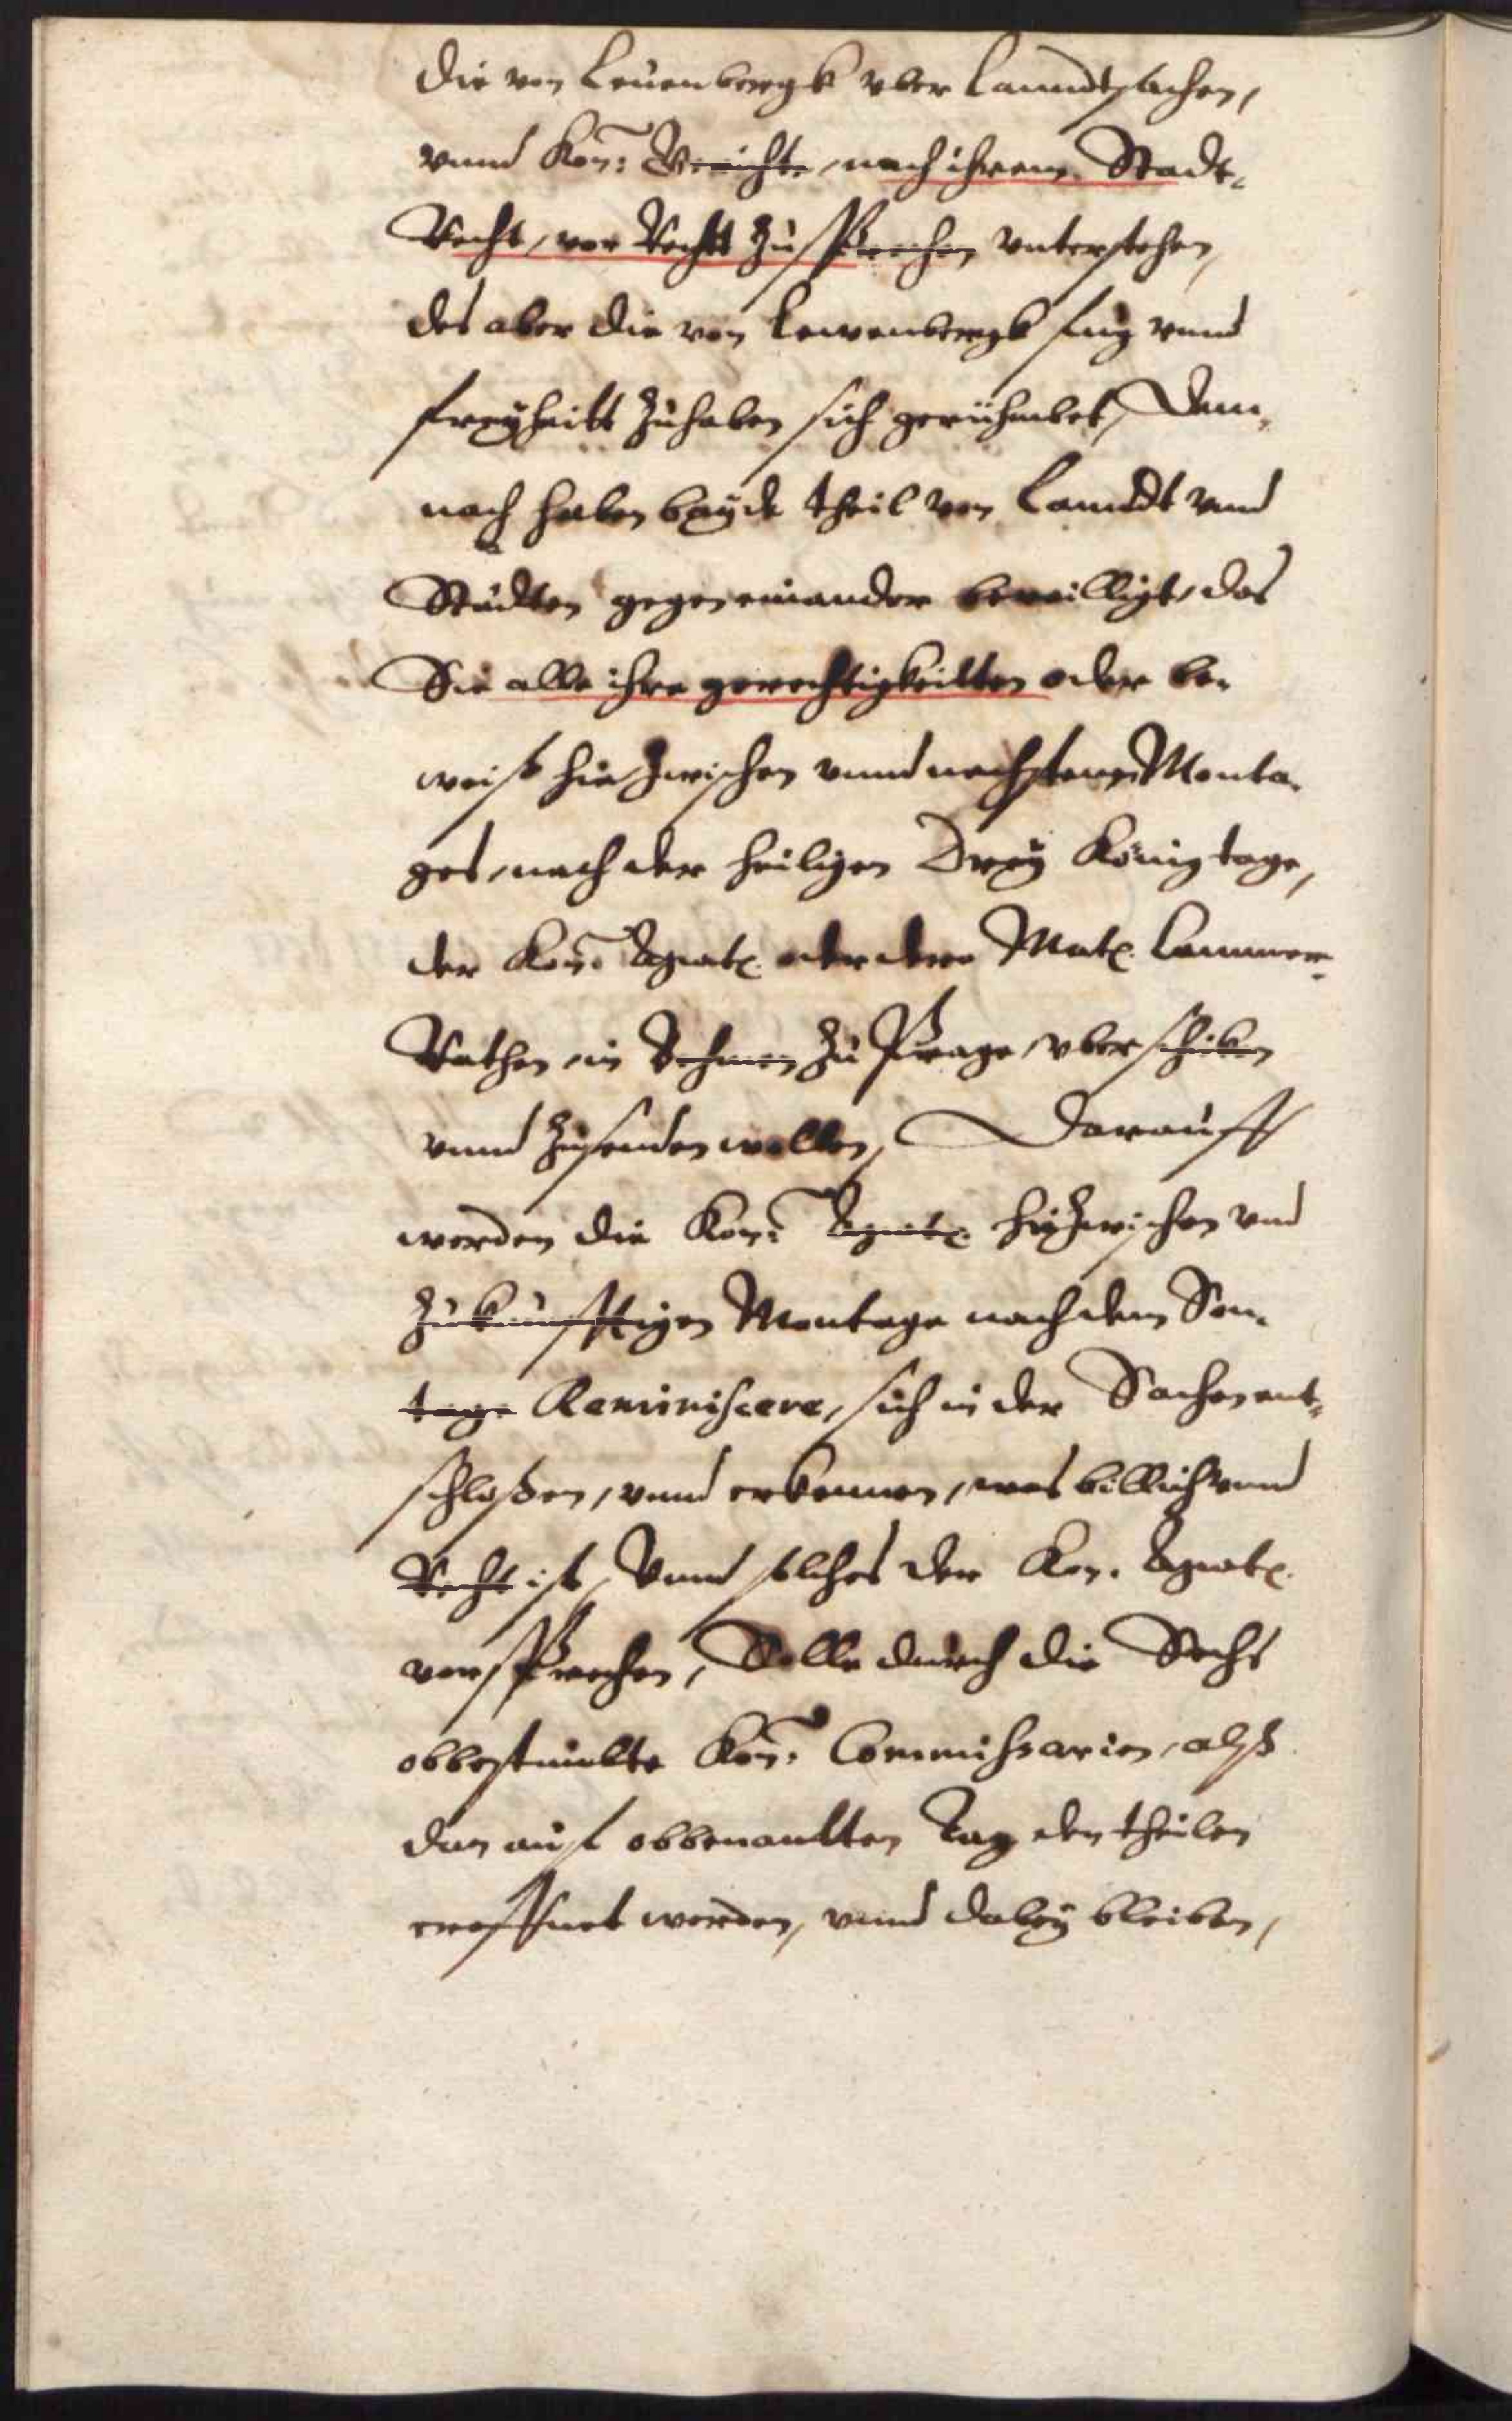 die von Leuenbergk vber Lanndtsachen,
vnnd Kön: Gerichte, nach ihrem Stadt,
Recht, vor Recht zu sprechen vnterstehen,
des aber die von Lewenbergk fug vnnd
freyheitt zuhaben sich gerühmbet, Dem,
nach haben beyde theil von Lanndt vnd
Städten gegeneinander bewilligt, das
Sie alle ihre gerechtigkeitten oder be,
weiß hie zwischen vnnd nechsten Monta,
ges, nach der heiligen Drey König tage,
der Kön: Mayt. oder dero Mayt. Cammer,
Räthen, in Behmen zu Prage, vberschiken
vnnd zusenden wollen, Darauff
werden die Kön: Mayt. hiezwischen vnd
zukünfftigen Montage nach dem Son,
tage Reminiscere, sich in der Sachen ent,
schloßen, vnnd erkennen, was billich vnnd
Recht ist, Vnnd solches der Kön. Mayt.
versprechen, Solle durch die Sechs
obbestimbte Kön: Commissarien, alß
dan auf obbenantten Tag den theilen
eröffnet werden, vnnd dabey bleiben,